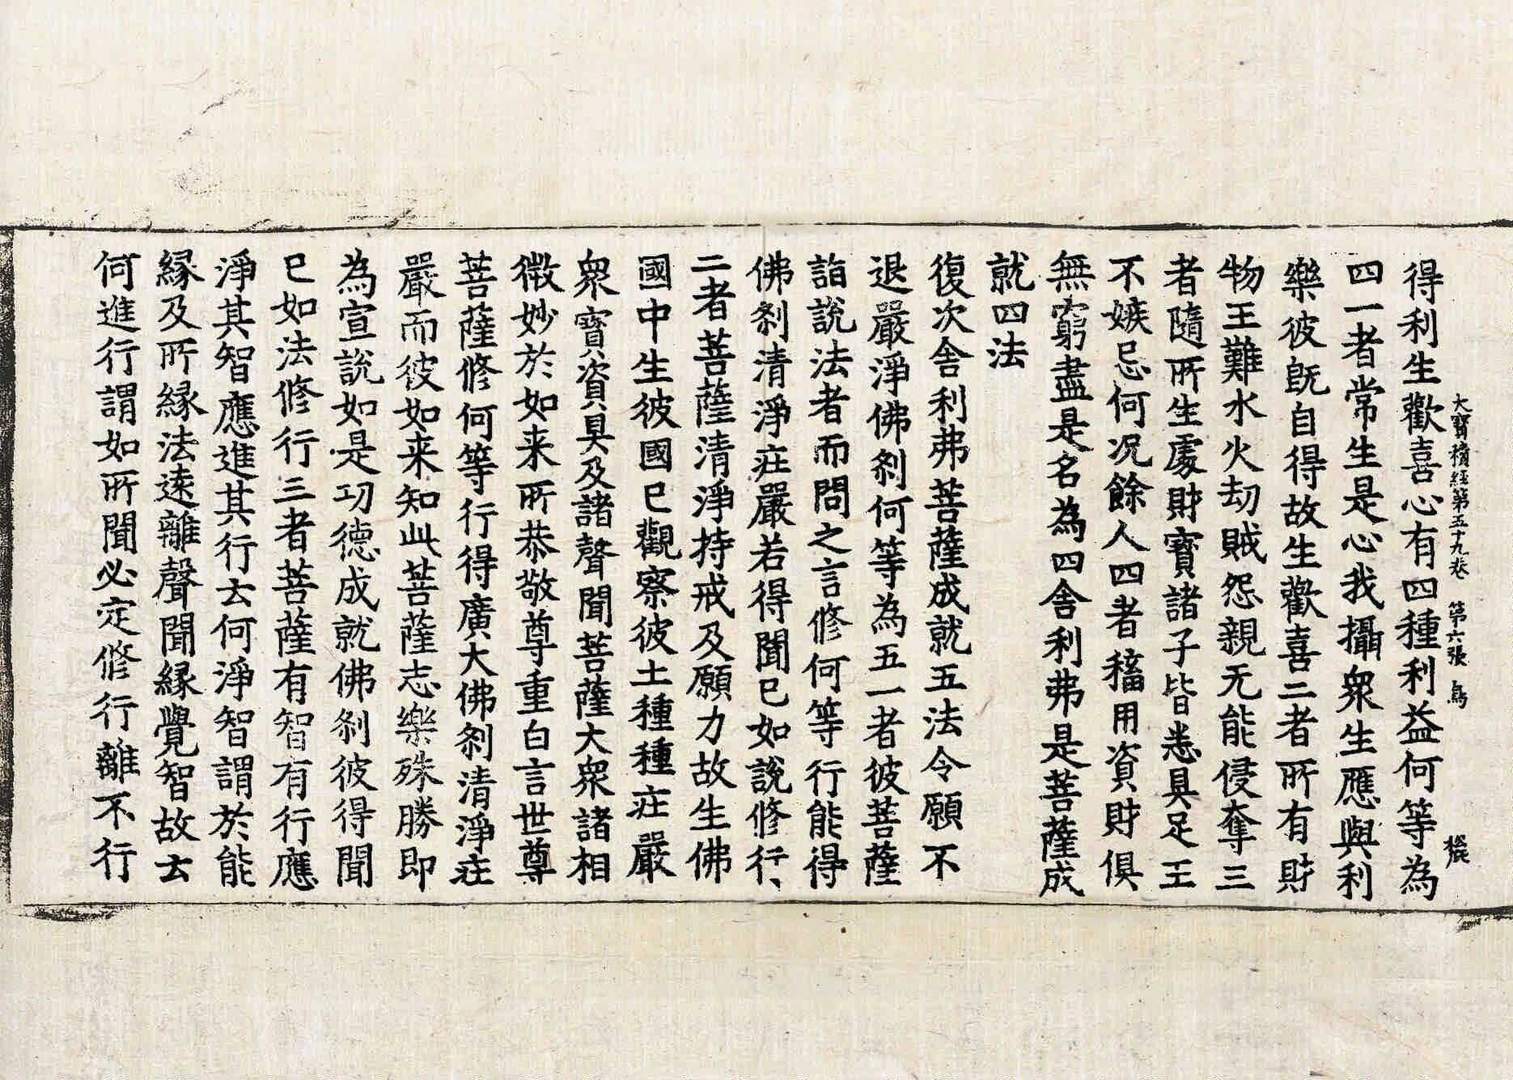 大寳積經第五十九卷 第六張 鳥
得利生歡喜心有四種利益何等為
四一者常生是心我攝衆生應與利
樂彼旣自得故生歡喜二者所有財
物王難水火劫賊怨親无能侵奪三
者隨所生處財寶諸子皆悉具足王
不嫉忌何況餘人四者稸用資財俱
無窮盡是名為四舍利弗是菩薩成
就四法
復次舍利弗菩薩成就五法令願不
退嚴淨佛刹何等為五一者彼菩薩
詣說法者而問之言修何等行能得
佛刹清淨莊嚴若得聞已如說修行
二者菩薩清淨持戒及願力故生佛
國中生彼國已觀察彼土種種莊嚴
衆寶資具及諸聲聞菩薩大衆諸相
微妙於如来所恭敬尊重白言世尊
菩薩修何等行得廣大佛刹清淨莊
嚴而彼如来知此菩薩志樂殊勝即
為宣說如是功德成就佛刹彼得聞
已如法修行三者菩薩有智有行應
淨其智應進其行云何淨智謂於能
緣及所緣法遠離聲聞緣覺智故云
何進行謂如所聞必定修行離不行